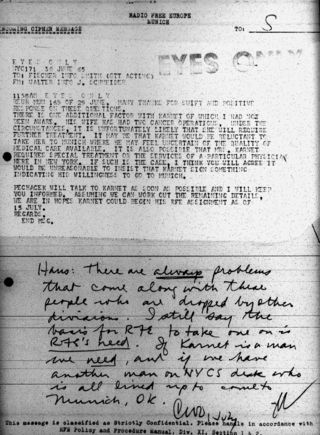 RADIO FREE EUROPE
INCOMING CIPHER MESSAGE MUNICH TO: S
EYES ONLY
EYES ONLY
NYC171 28 JUNE 65
TO: FISCHER INFO SMITH (GTT ACTING)
FM: WALTER INFO J.
YOUR MUN 165 OF 25 JUNE. MANY THANKS FOR SWIFT AND POSITIVE
RESPONSE ON THESE QUESTIONS.
THERE IS ONE ADDITIONAL FACTOR WITH KARNET OF WHICH I HAD NOT
BEEN AWARE. HIS WIFE HAS HAD TWO CANCER OPERATIONS. UNDER THE
CIRCUMSTANCES, IT IS UNFORTUNATELY LIKELY THAT SHE WILL REQUIRE
FURTHER TREATMENT. IT MAY BE THAT KARNET WOULD BE RELUCTANT TO
TAKE HER TO MUNICH WHERE HE MAY FEEL UNCERTAIN OF THE QUALITY OF
MEDICAL CARE AVAILABLE. IT IS ALSO POSSIBLE THAT MRS. KARNET
REQUIRES SPECIAL TREATMENT OR THE SERVICES OF A PARTICULAR PHYSICIAN
HERE IN NEW YORK. IF SUCH IS THE CASE, I THINK YOU WILL AGREE IT
WOULD BE WRONG FOR US TO INSIST THAT KARNET SIGN SOMETHING
INDICATING HIS WILLINGNESS TO GO TO MUNICH.
PECHACEK WILL TALK TO KARNET AS SOON AS POSSIBLE AND I WILL KEEP
YOU INFORMED. ASSUMING WE CAN WORK OUT THE REMAINING DETAILS,
WE ARE IN HOPES KARNET COULD BEGIN HIS RFE ASSIGNMENT AS OF
15 JULY.
REGARDS.
END MSG.
Hans: There are always problems
that come along with these
people who are dropped by other
divisions. I still say the
basis for RFE to take one on is
RFE's need. If Karnet is a man
we need, and if we have
another man on NYC's desk who
is all lined up to come to
Munich, OK.
1 July
This message is classified as Strictly Confidential. Please handle in accordance with
RFE Policy and Procedure Manual, Div. XI, Section